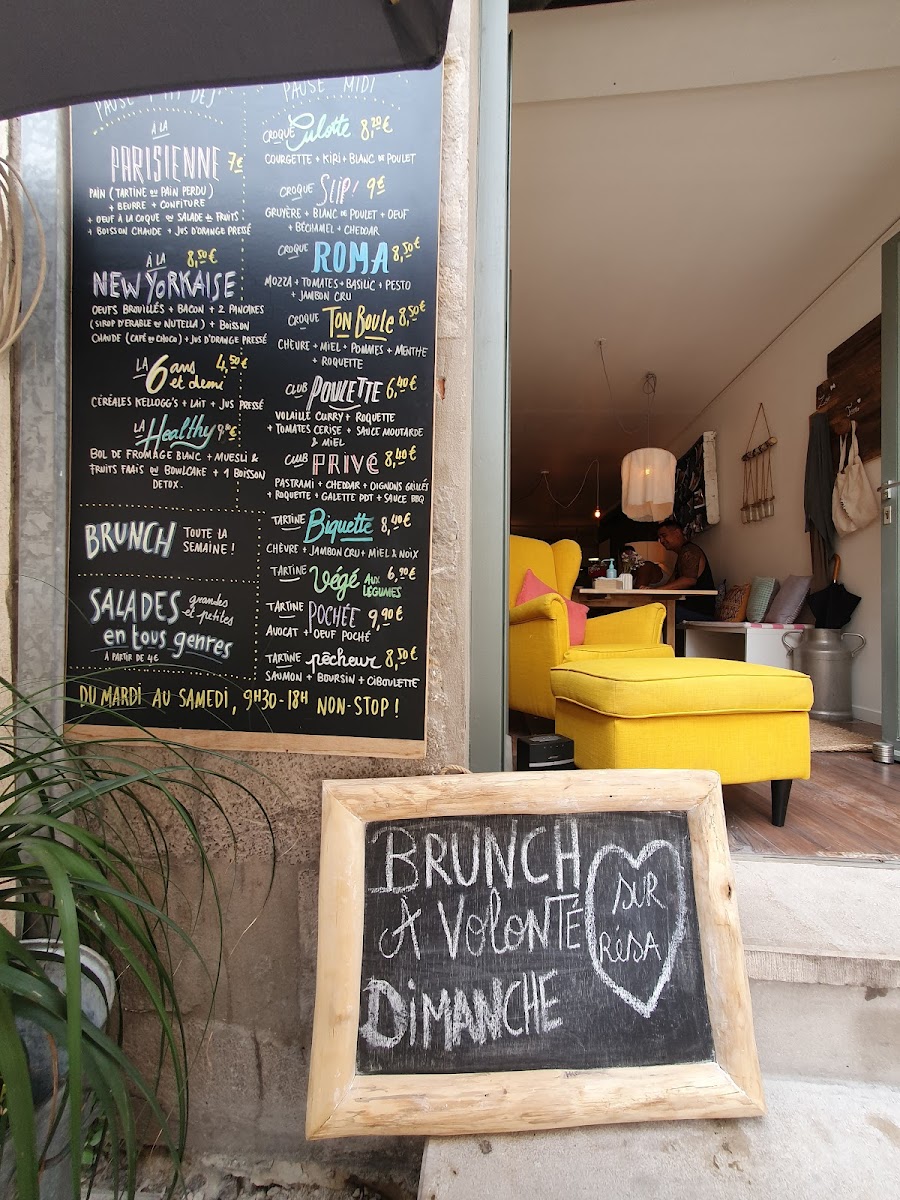 PAUSE P'TIT DEJ'
À LA
PARISIENNE 7€
PAIN (TARTINE OU PAIN PERDU)
+ BEURRE + CONFITURE
+ OEUF À LA COQUE OU SALADE DE FRUITS
+ BOISSON CHAUDE + JUS D'ORANGE PRESSÉ
À LA 8,50€
NEW YORKAISE
OEUFS BROUILLÉS + BACON + 2 PANCAKES
(SIROP D'ERABLE OU NUTELLA) + BOISSON
CHAUDE (CAFÉ OU CHOCO) + JUS D'ORANGE PRESSÉ
LA 6 ans et demi 4,50€
CÉRÉALES KELLOGG'S + LAIT + JUS PRESSÉ
LA Healthy
BOL DE FROMAGE BLANC + MUESLI &
FRUITS FRAIS OU BOWLCAKE + 1 BOISSON
DETOX.
BRUNCH TOUTE LA
SEMAINE !
SALADES grandes et petites
en tous genres
À PARTIR DE 4€
PAUSE MIDI
CROQUE Culotte 8,20€
COURGETTE + KIRI + BLANC DE POULET
CROQUE SLIP! 9€
GRUYÈRE + BLANC DE POULET + OEUF
+ BÉCHAMEL + CHEDDAR
CROQUE ROMA 8,50€
MOZZA + TOMATES + BASILIC + PESTO
+ JAMBON CRU
CROQUE TON BOULE 8,50€
CHÈVRE + MIEL + POMMES + MENTHE
+ ROQUETTE
CLUB POULETTE 6,40€
VOLAILLE CURRY + ROQUETTE
+ TOMATES CERISE + SAUCE MOUTARDE
& MIEL
CLUB PRIVÉ 8,40€
PASTRAMI + CHEDDAR + OIGNONS GRILLÉS
+ ROQUETTE + GALETTE PDT + SAUCE BBQ
TARTINE Biquette 8,40€
CHÈVRE + JAMBON CRU + MIEL & NOIX
TARTINE Végé AUX LÉGUMES 6,90€
TARTINE POCHÉE 9,90€
AVOCAT + OEUF POCHÉ
TARTINE pêcheur 8,50€
SAUMON + BOURSIN + CIBOULETTE
DU MARDI AU SAMEDI, 9H30-18H NON-STOP !
BRUNCH
À VOLONTÉ
DIMANCHE
SUR
RÉSA